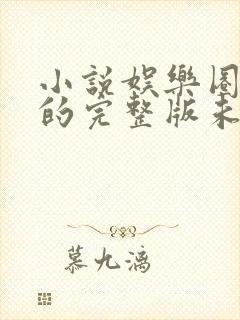 小説娛樂圈
的完整版未
慕九漓